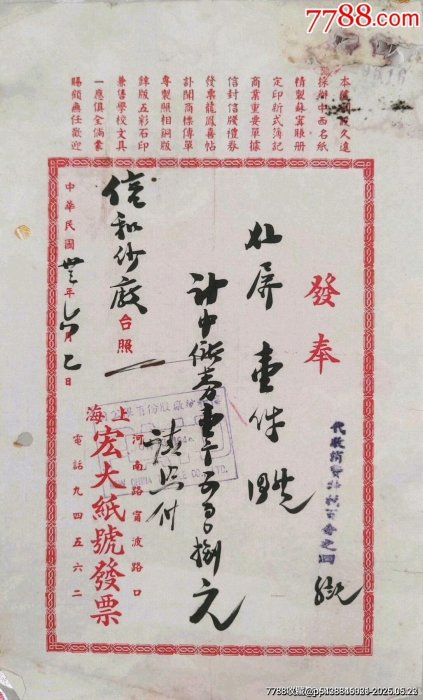 7788.com
本號開設久遠
採辦中西名紙
精製蘇寗賬册
定印新式簿記
商業重要單據
信封信牋禮券
發票龍鳳喜帖
訃聞商標傳單
專製照相銅版
鋅版五彩石印
兼售學校文具
一應俱全倘蒙
賜顧無任歡迎
發奉
代收消費特稅百分之四
壹件
計中儲券壹千
捌元
請照付
信和紗廠台照
中華民國卅三年六月乙日
上海
宏大紙號發票
河南路甯波路口
電話九四五六二